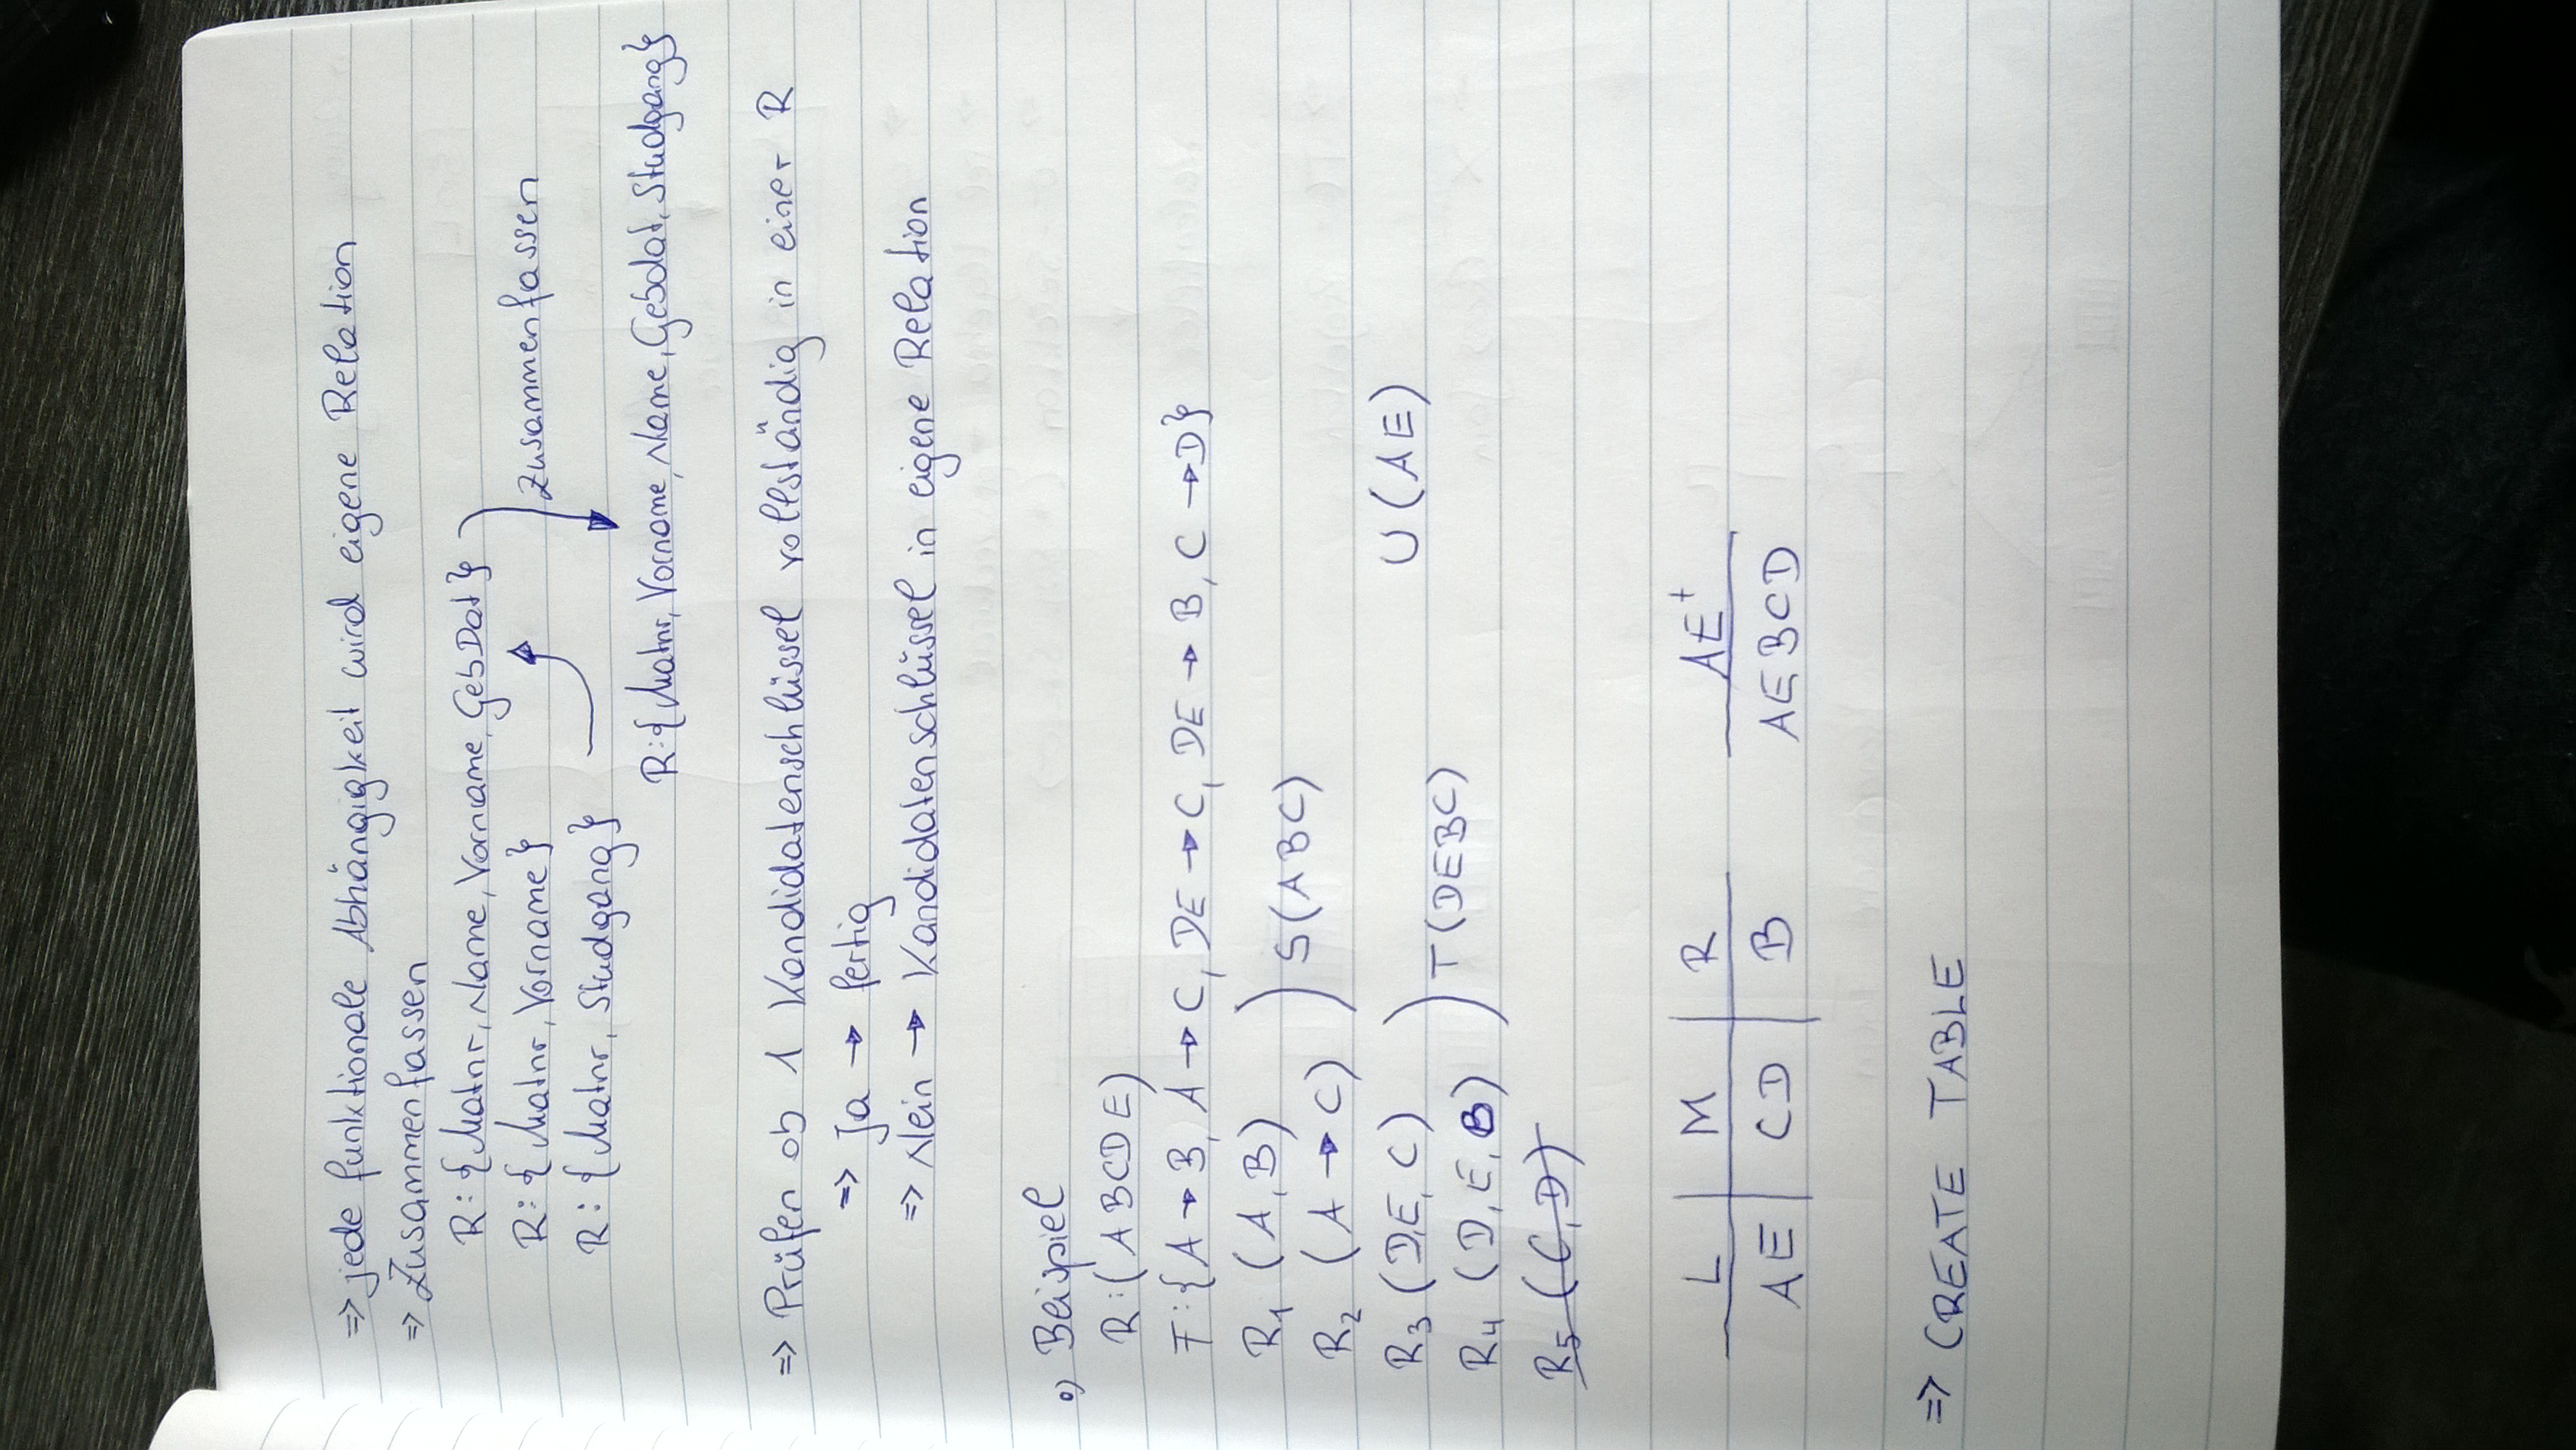 => jede funktionale Abhängigkeit wird eigene Relation
=> Zusammenfassen
R:{Matnr, Name, Vorname, GebDat}
R:{Matnr, Vorname} zusammenfassen
R:{Matnr, Studgang}
R:{Matnr, Vorname, Name, Gebdat, Studgang}
=> Prüfen ob 1 Kandidatenschlüssel vollständig in einer R
=> Ja → fertig
=> Nein → Kandidatenschlüssel in eigene Relation
o) Beispiel
R:(ABCDE)
F:{A→B, A→C, DE→C, DE→B, C→D}
R1 (A,B)
R2 (A→C) ) S(ABC)
R3 (D,E,C) U(AE)
R4 (D,E,B) ) T(DEBC)
R5 (C,D)
L | M | R AE+
AE | CD | B AEBCD
=> CREATE TABLE